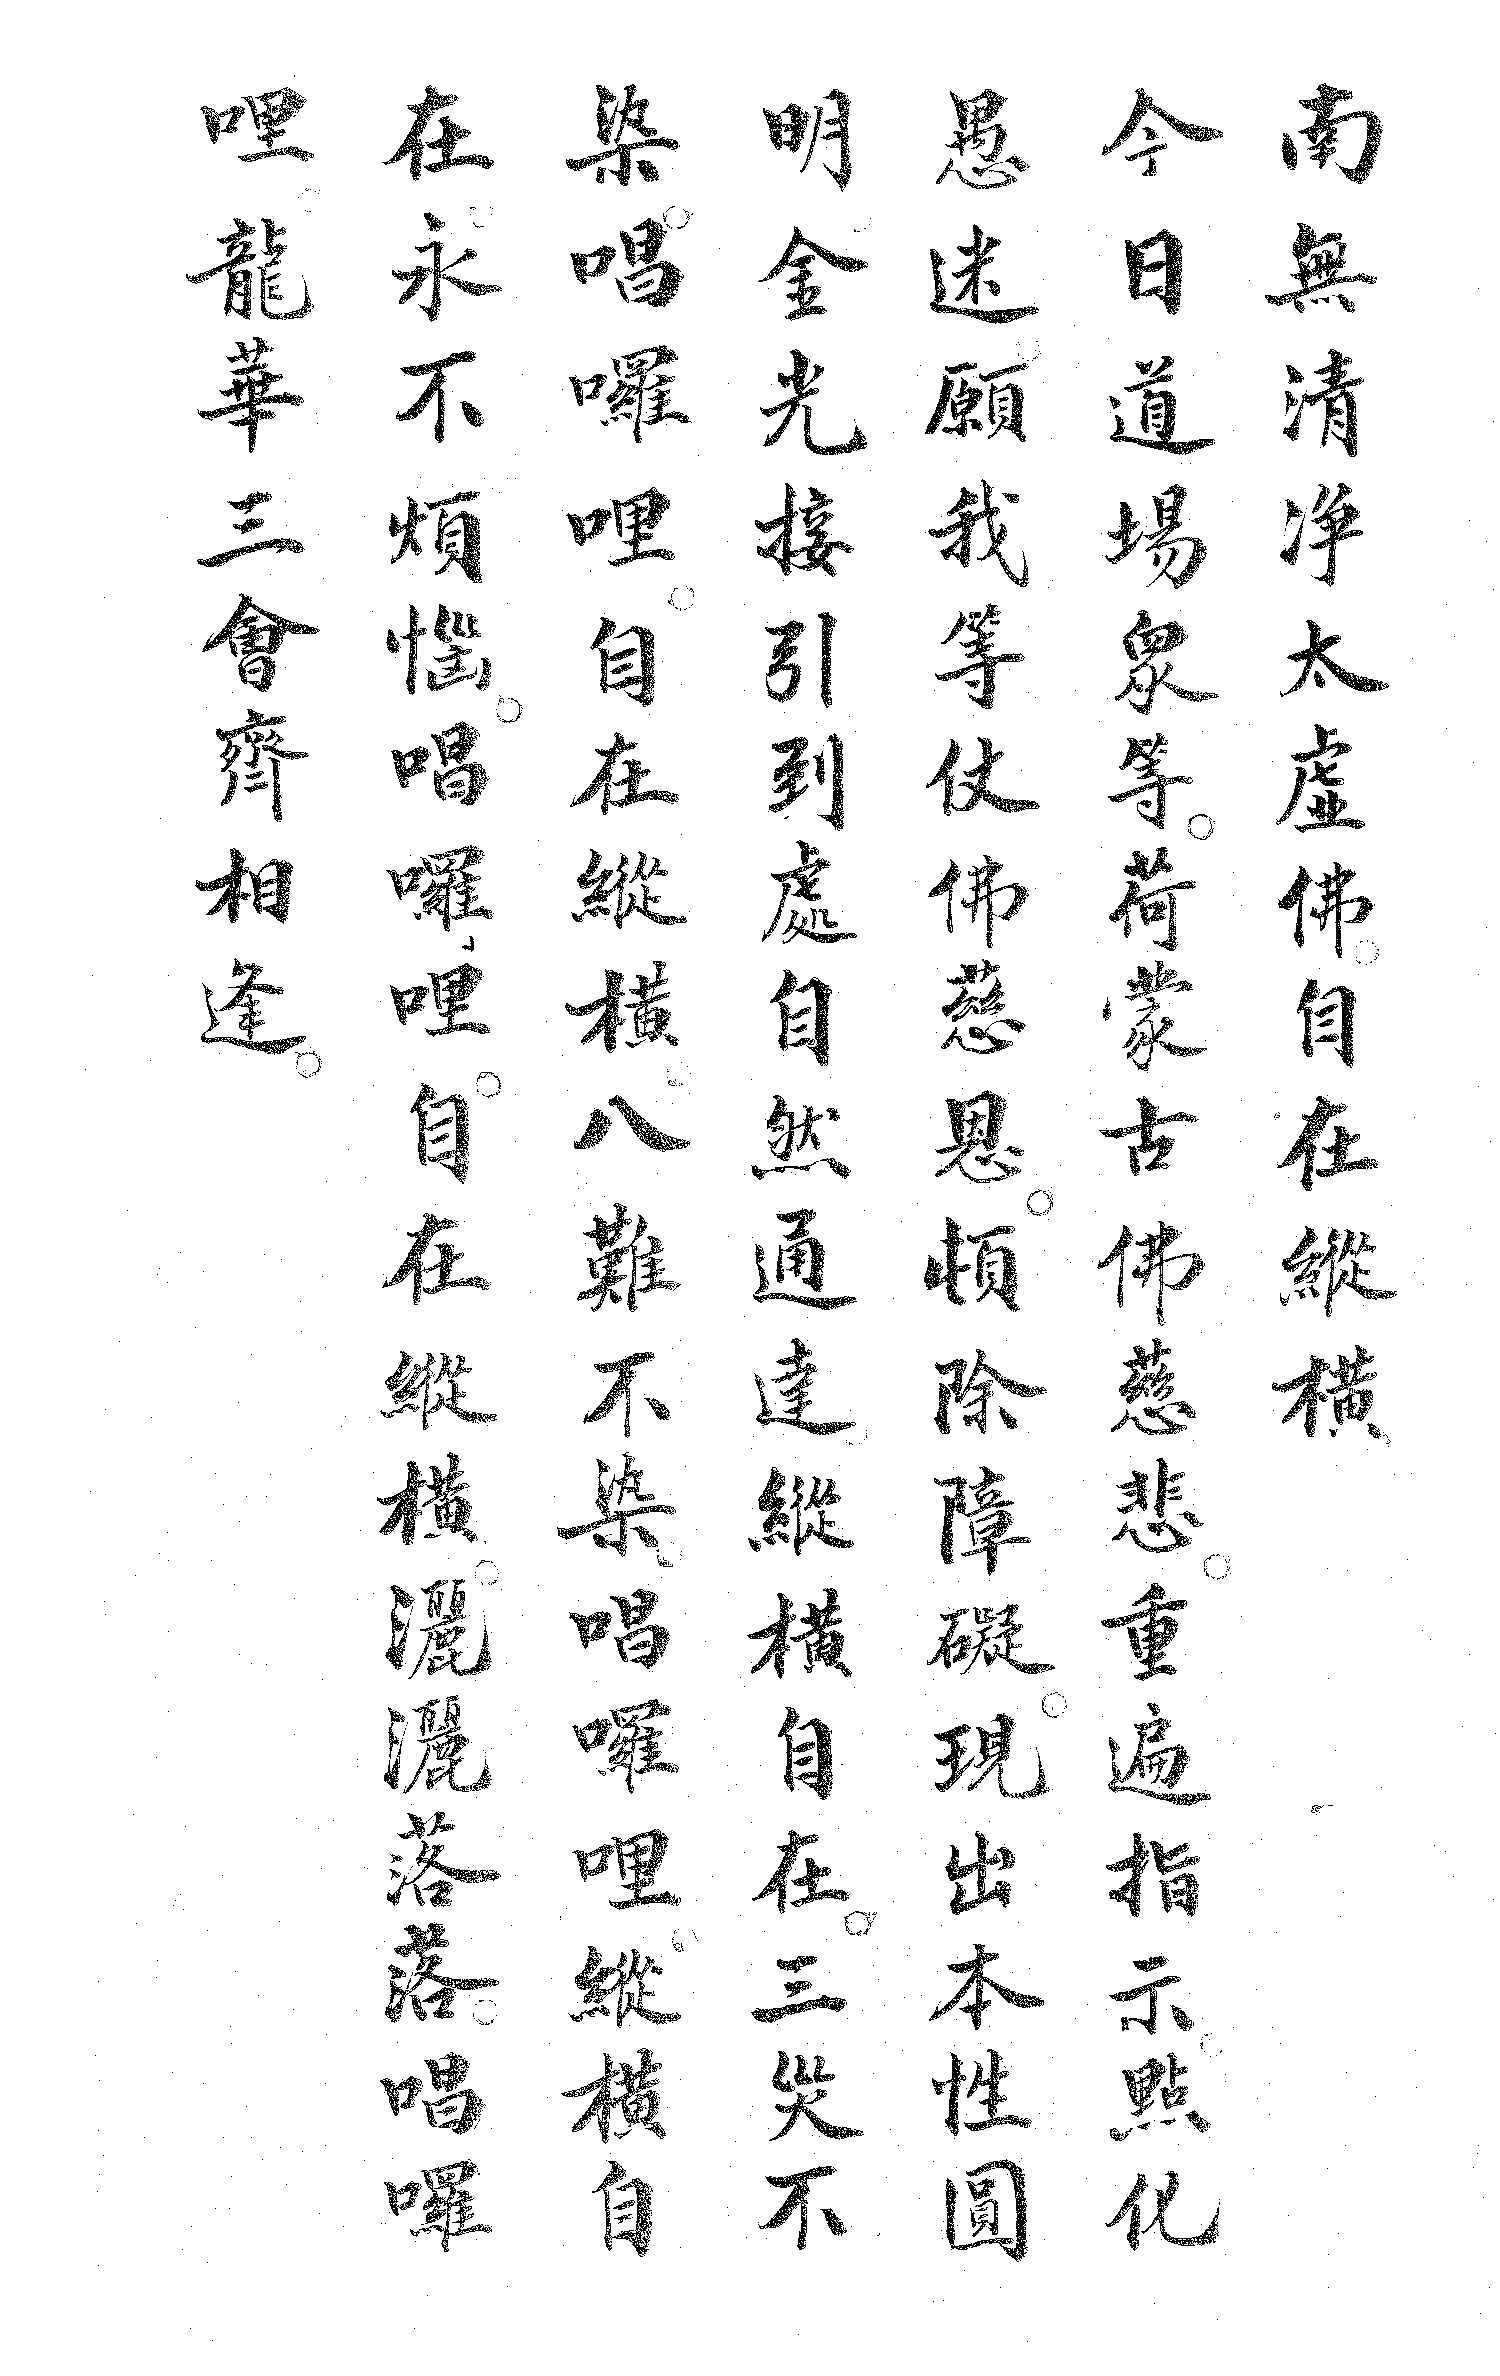 南無清淨太虛佛。自在縱橫。
今日道場眾等。荷蒙古佛慈悲。重遍指示。點化
愚迷。願我等仗佛慈恩。頓除障礙。現出本性圓
明。金光接引到處自然通達。縱橫自在。三災不
染。唱囉哩。自在縱橫。八難不染。唱囉哩。縱橫自
在。永不煩惱。唱囉哩。自在縱橫。灑灑落落。唱囉
哩。龍華三會齊相逢。